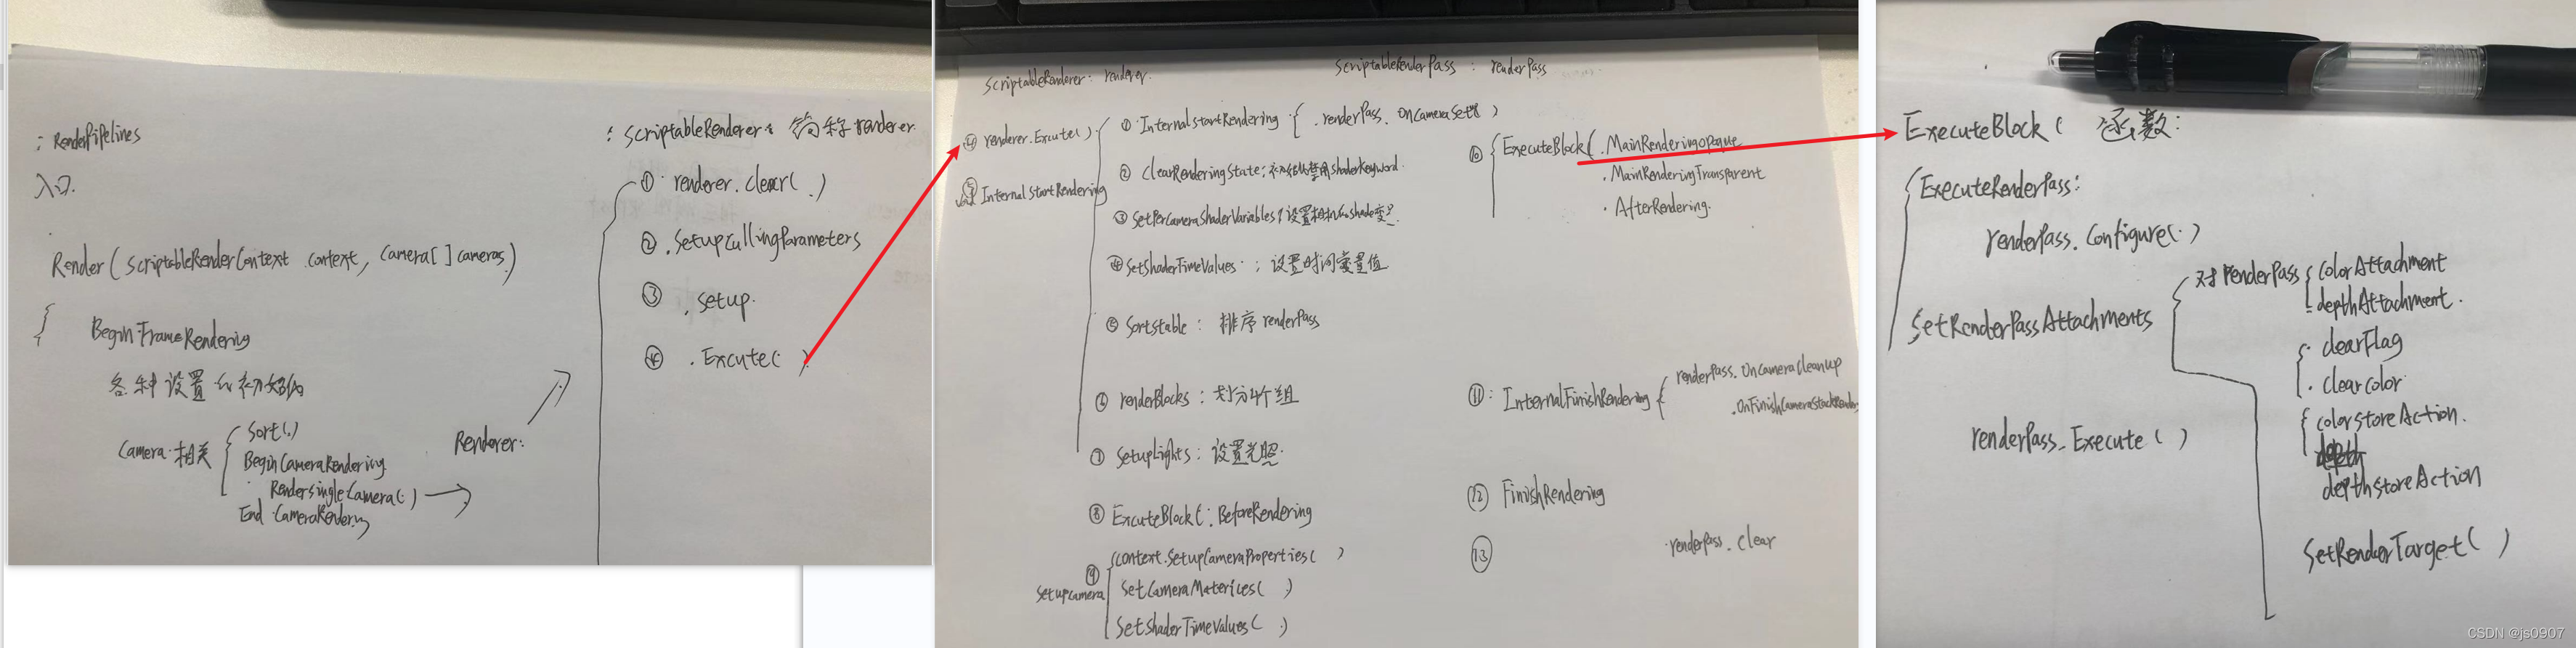 : RenderPipelines
入口.
Render( ScriptableRenderContext context, Camera[] cameras)
{
BeginFrameRendering
各种设置和初始化
Camera相关
Sort(.)
BeginCameraRendering
RendersingleCamera(.)
End CameraRendering
Renderer:
: ScriptableRenderer: 简称renderer.
① renderer.clear( . )
② .SetupCullingParameters
③ .setup.
④ .Excute( )
ScriptableRenderer: renderer.
ScriptableRenderPass : renderPass
④ renderer.Excute( )
InternalStartRendering
① InternalstartRendering { .renderPass. OnCameraSetup )
② ClearRenderingState: 初始化禁用shaderKeyword.
③ SetPerCameraShaderVariables: 设置相机shader变量
④ SetShaderTimeValues : 设置时间变量值
⑤ Sortstable : 排序renderPass
⑥ renderBlocks : 划分4个组
⑦ SetupLights: 设置光照.
⑧ ExcuteBlock( : BeforeRendering
⑨ Setupcamera
context.SetupCameraProperties( )
SetCameraMaterices( )
SetShaderTimeValues( )
⑩ { ExecuteBlock( .MainRenderingOpaque
.MainRenderingTransparent
· AfterRendering.
⑪ : InternalFinishRendering {
renderPass.OnCameraCleanup
.OnFinishCameraStackRender
⑫ FinishRendering
⑬ .renderPass.clear
ExecuteBlock( 函数:
ExecuteRenderPass:
renderPass.Configure(.)
SetRenderPassAttachments
对renderPass
colorAttachment
depthAttachment.
clearFlag
. clearcolor
colorstoreAction.
depthstoreAction
SetRenderTarget( )
renderPass.Execute( )
CSDN @js0907